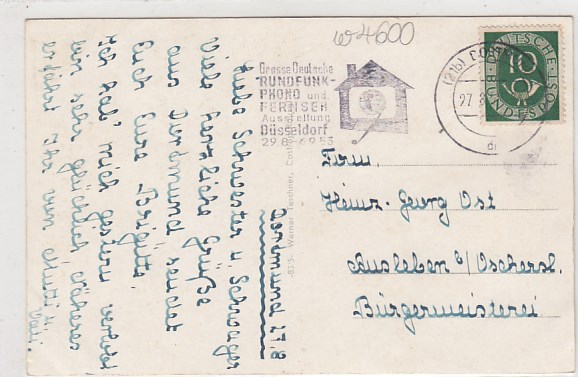 w4600
Grosse Deutsche
RUNDFUNK-
PHONO und
FERNSEH
Ausstellung
Düsseldorf
29.8.-6.9.53
(21b) DORT
27.8
d
DEUTSCHE
BUNDESPOST
10
Dortmund 27.8
Liebe Schwester u. Schwager
Viele herzliche Grüße
aus Dortmund sendet
Euch Eure Brigitte.
Ich hab' mich gestern verlobt,
bin sehr glücklich. Näheres
erfährt Ihr von Mutti u.
Vati.
Werner Taschner,
Fam.
Heinz-Georg Ost
Ausleben b/Oschersl.
Bürgermeisterei